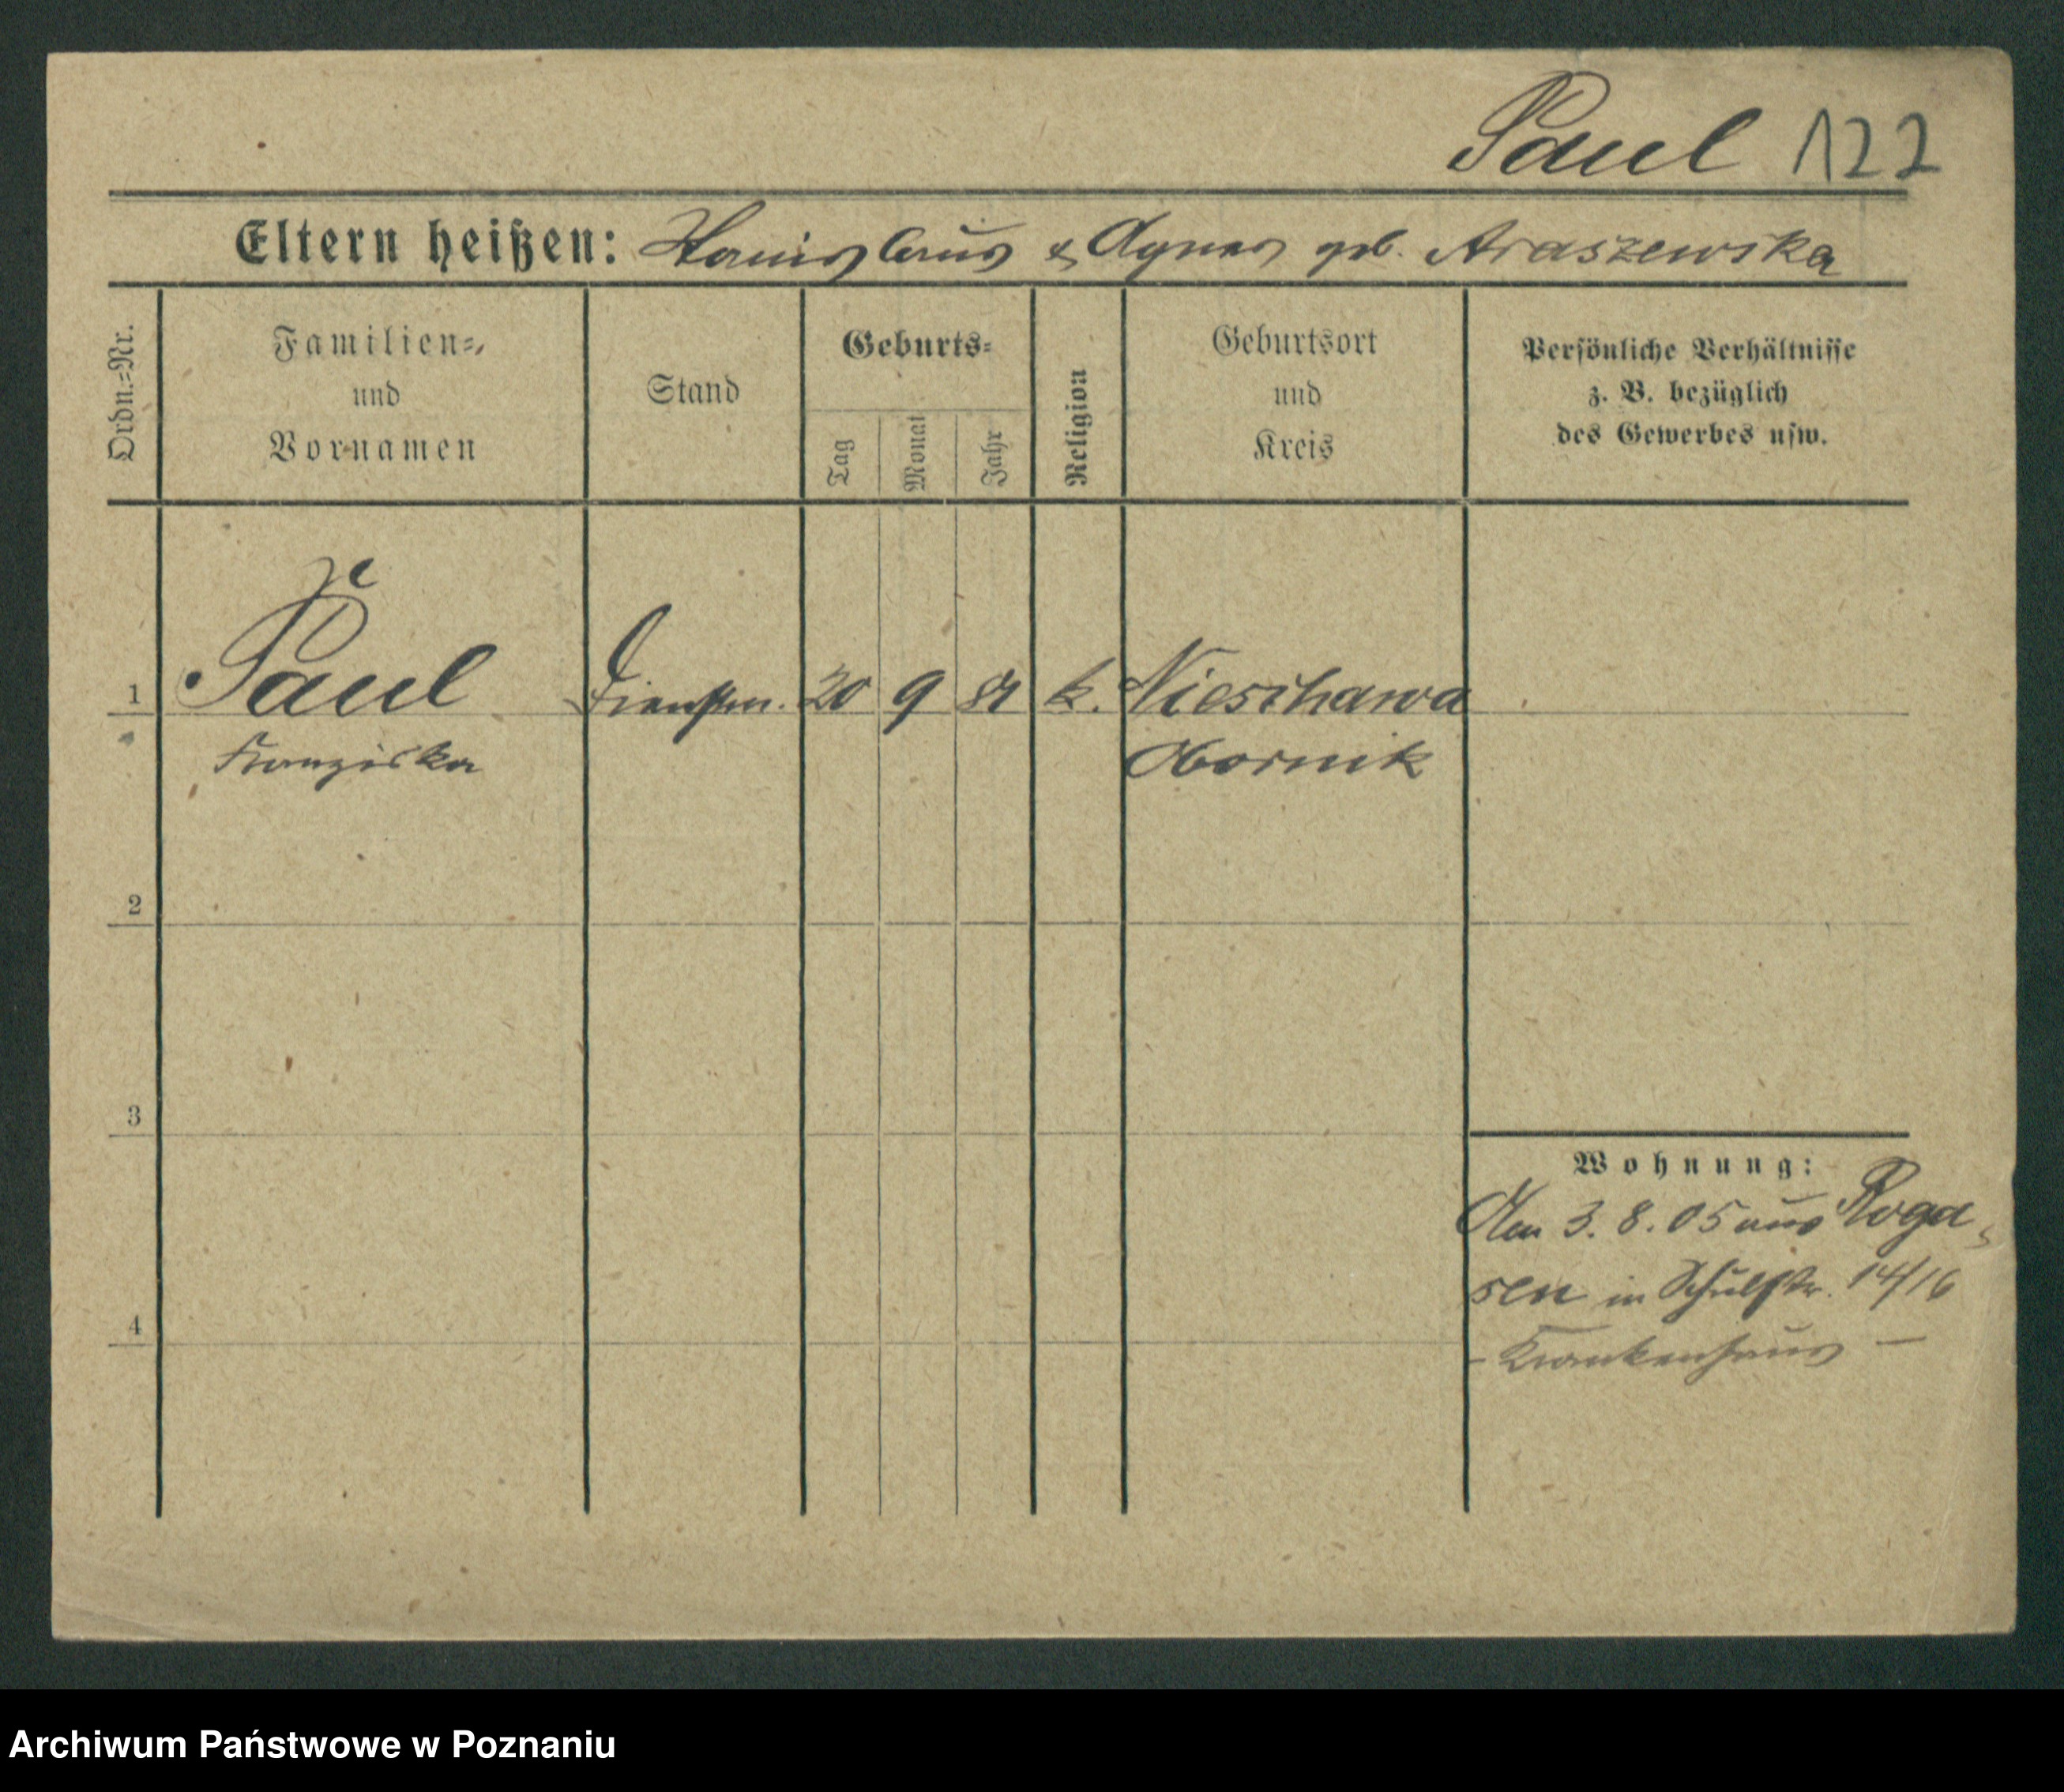 Paul 122
Eltern heißen: Stanislaus & Agnes geb. Araszewska
Ordn.=Nr.
Familien=,
und
Vornamen
Stand
Geburts=
Tag
Monat
Jahr
Religion
Geburtsort
und
Kreis
Persönliche Verhältnisse
z. B. bezüglich
des Gewerbes usw.
1 Paul Dienstm. 20 9 81 k. Nieschawa
Franziska Obornik
2
3
4
Wohnung:
Am 3. 8. 05 aus Roga=
sen in Schulstr. 14/16
- Krankenhaus -
Archiwum Państwowe w Poznaniu